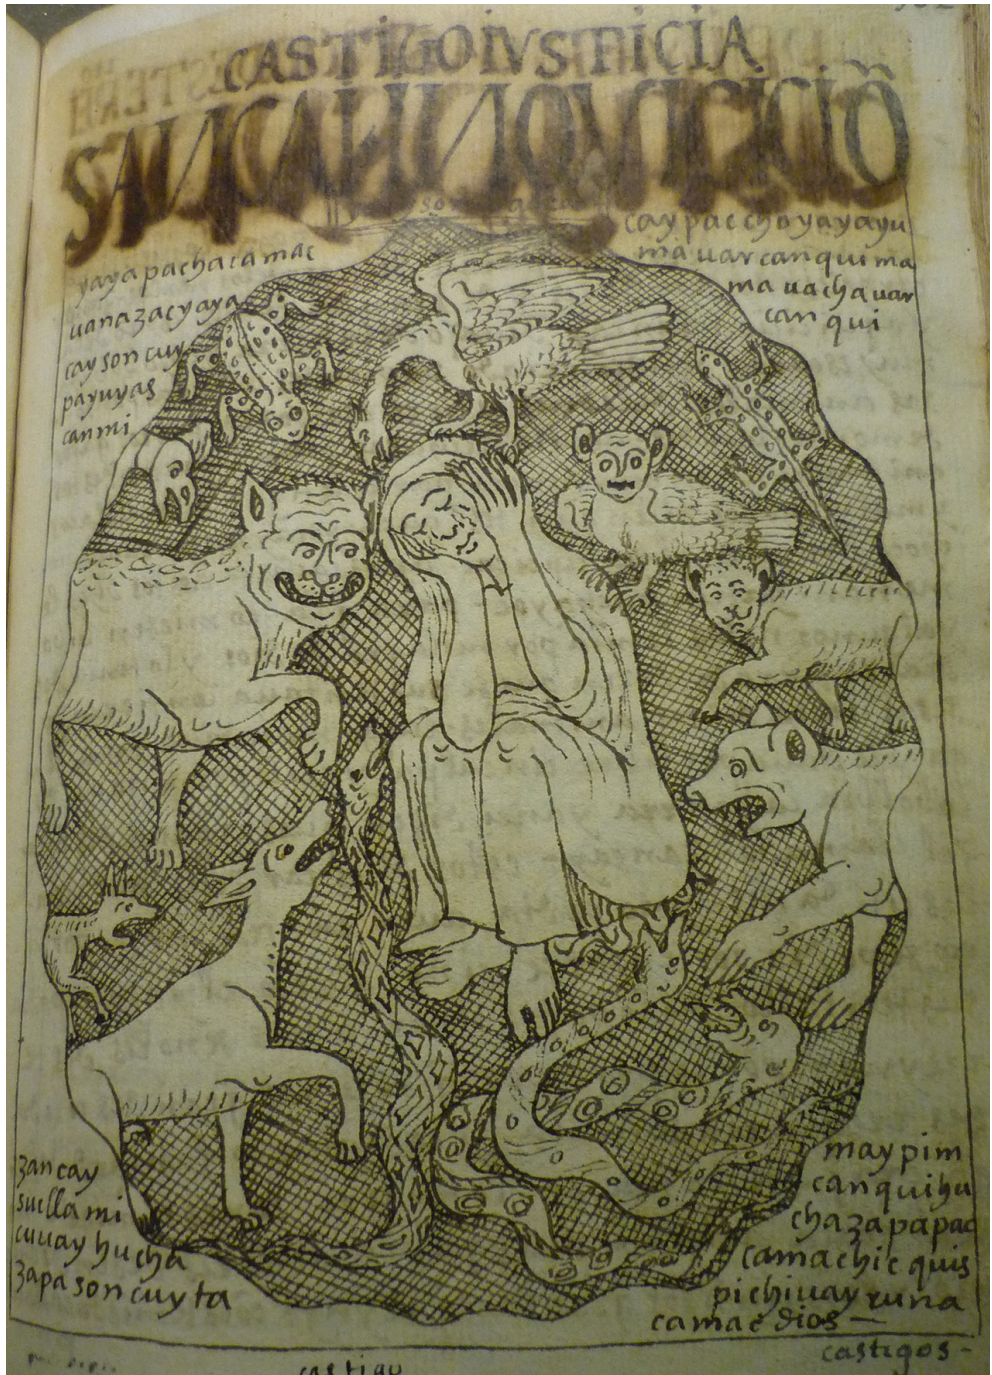 CASTIGO IVSTICIA
SANCAI INQVICICIÕ
yaya pachacamac
uanazac yaya
cay soncuy
payuyas
canmi
cay pac cho yayayu
ma uarcanqui ma
ma uachauar
can qui
zancay
suclla mi
cuuay hucha
zapa soncuyta
may pim
canqui hu
cha zapa pac
camachic quis
pichiuay runa
camac dios —
castigo
castigos -